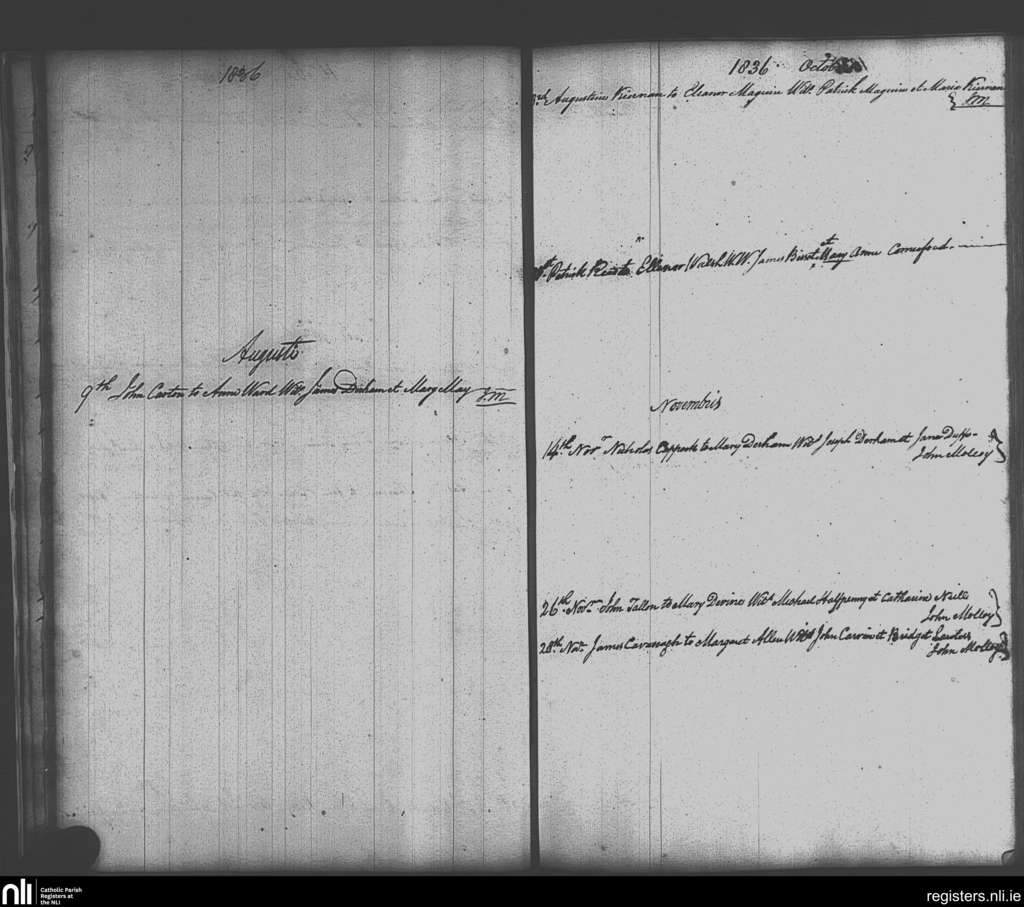 1836
Augusti
9th John Carton to Anne Ward Wits James Durham et Mary May J.M
1836 October
3rd Augustine Kiernan to Eleanor Maguire Wits. Patrick Maguire et Maria Kiernan
J.M
Patrick to Elleanor Walsh W.W. James et Mary Anne Comerford.
Novembris
14th Novr Nicholas to Mary Derham Wits Joseph Derham et Jane Duffe
John Molloy
26th Novr John Tallon to Mary Devine Wits Michael Halfpenny et Catharine
John Molloy
28th Novr James Cavanagh to Margaret Allen Wits John et Bridget
John Molloy
nli
Catholic Parish
Registers at
the NLI
registers.nli.ie